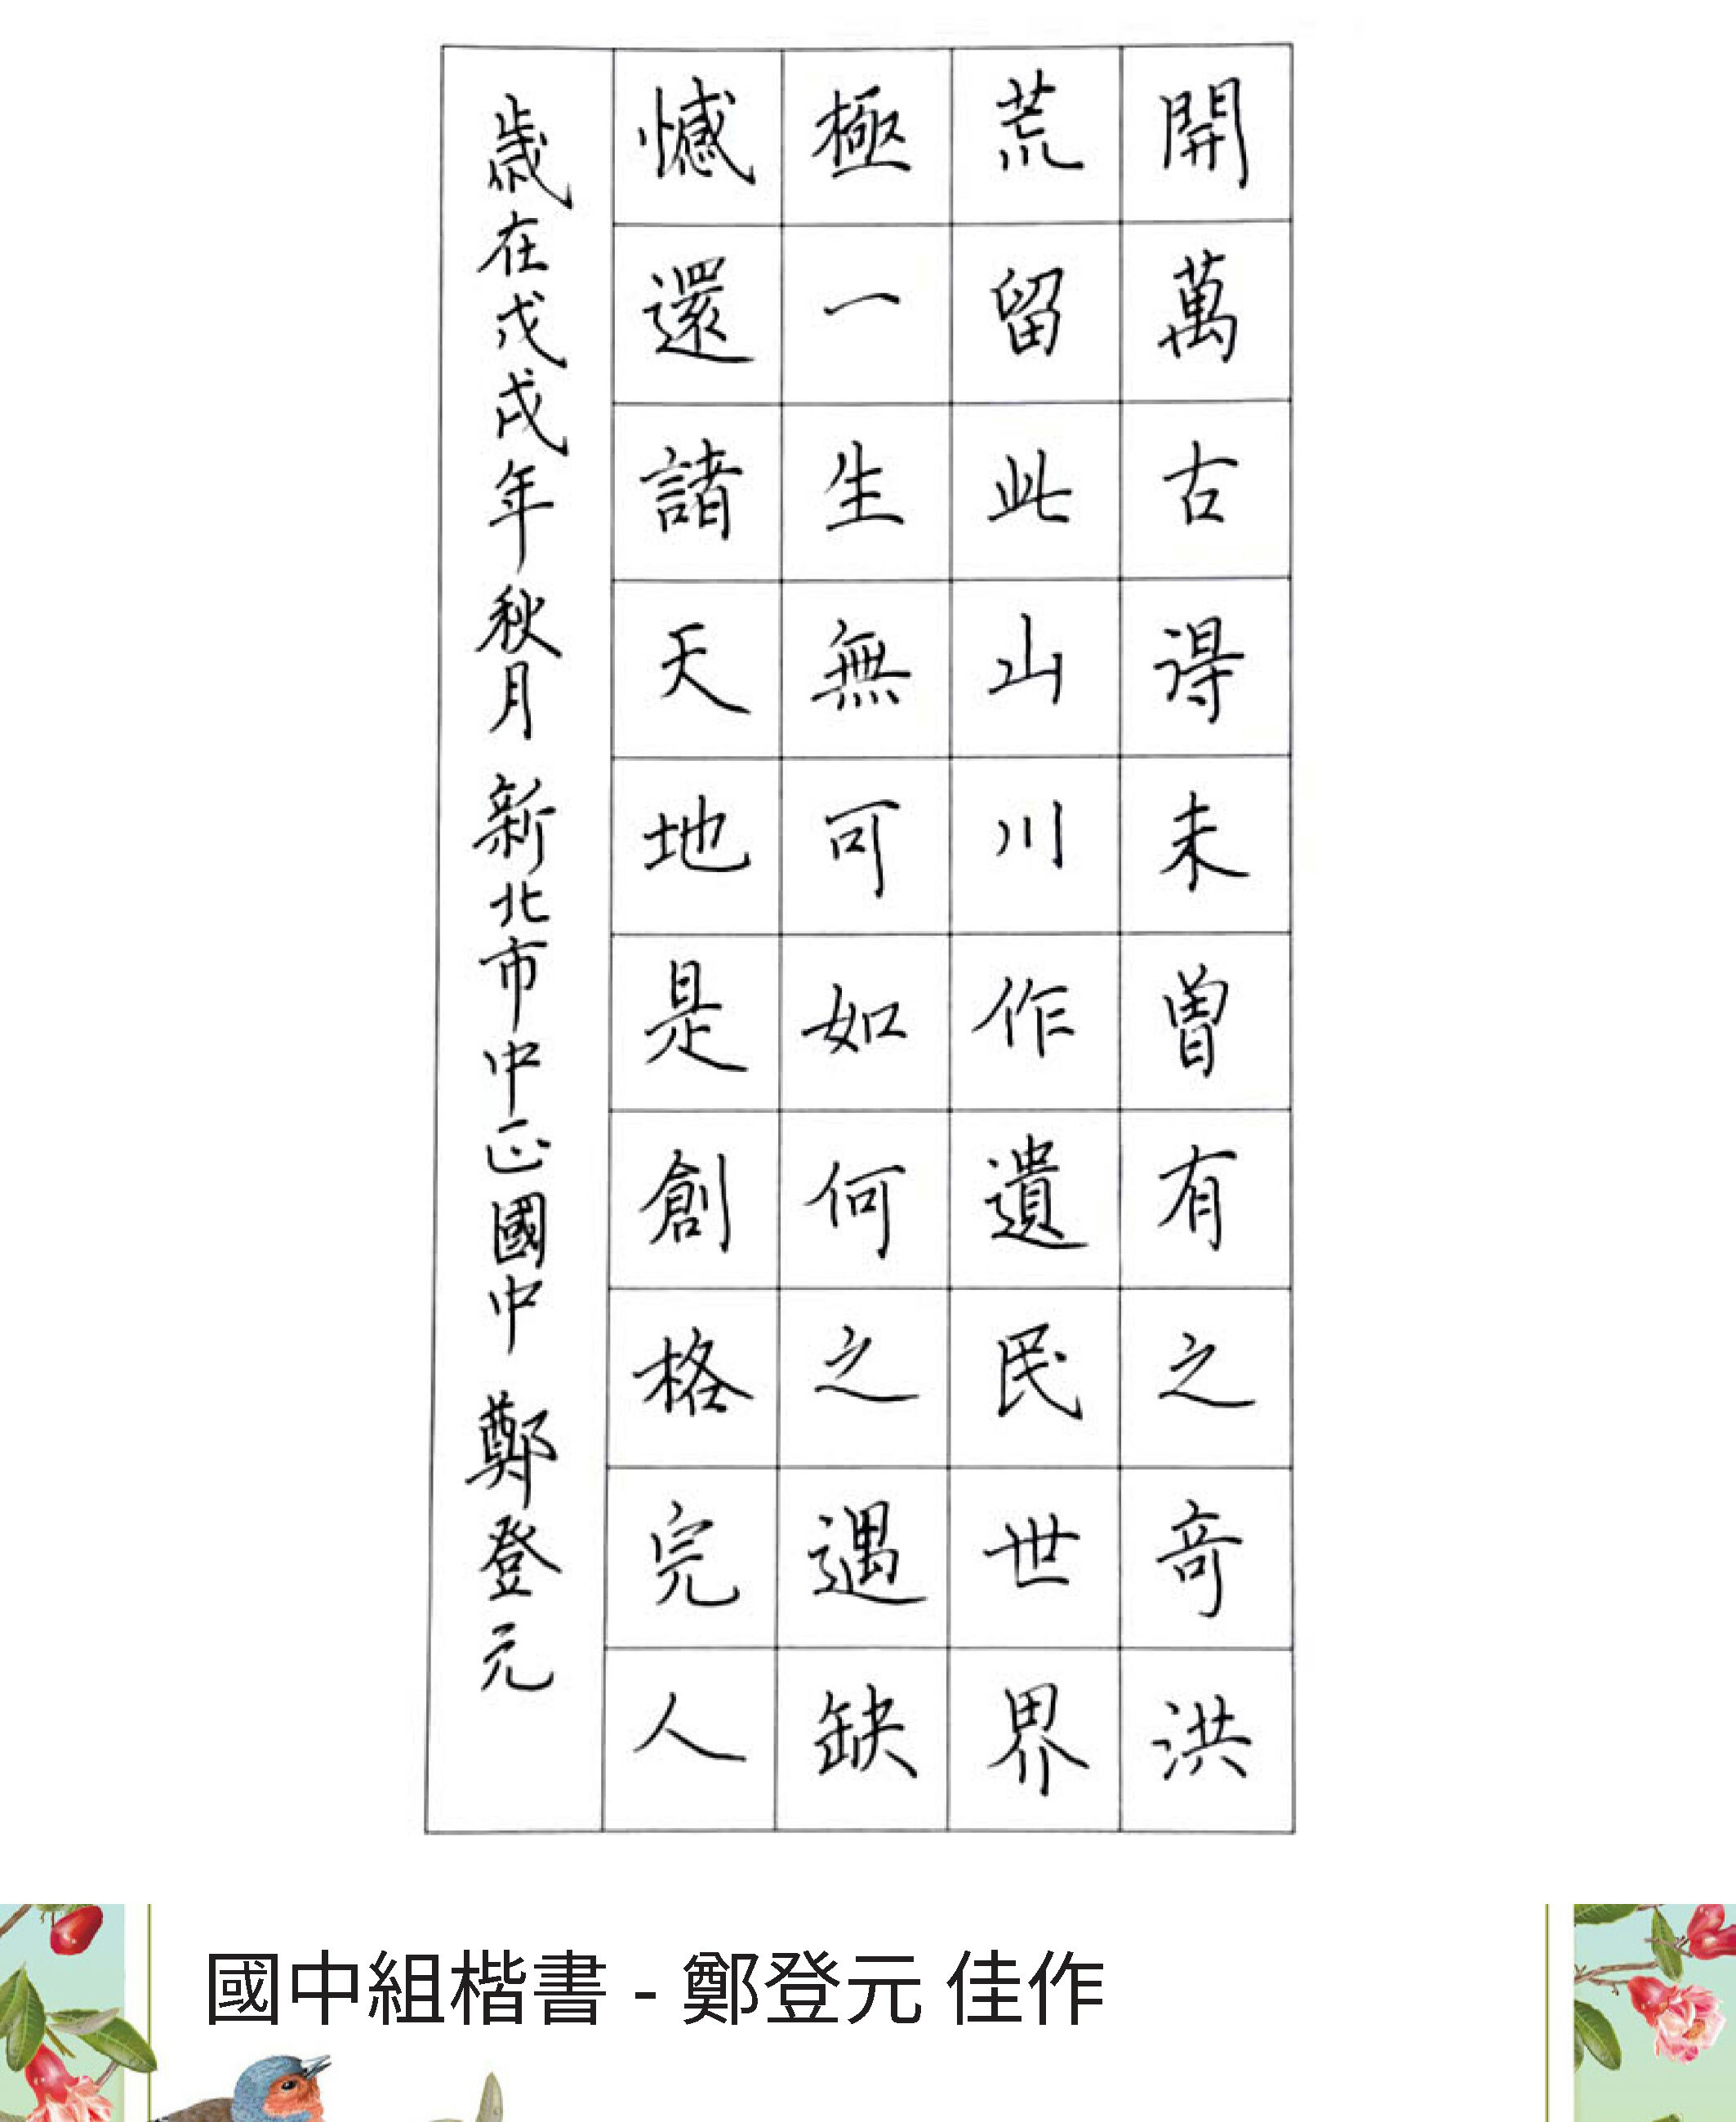 開萬古得未曾有之奇洪
荒留此山川作遺民世界
極一生無可如何之遇缺
憾還諸天地是創格完人
歲在戊戌年秋月 新北市中正國中 鄭登元
國中組楷書 - 鄭登元 佳作